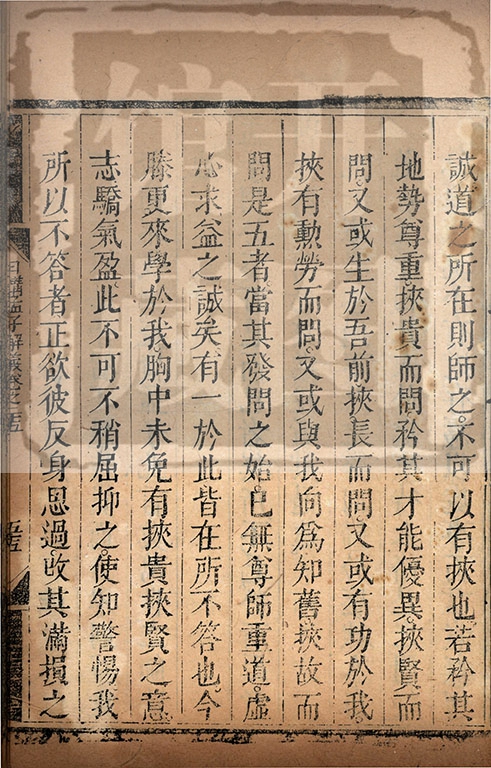 誠道之所在則師之不可以有挾也若矜其
地勢尊重挾貴而問矜其才能優異挾賢而
問又或生於吾前挾長而問又或有功於我
挾有勳勞而問又或與我向爲知舊挾故而
問是五者當其發問之始已無尊師重道虛
心求益之誠矣有一於此皆在所不答也今
滕更來學於我胸中未免有挾貴挾賢之意
志驕氣盈此不可不稍屈抑之使知警惕我
所以不答者正欲彼反身思過改其滿損之
日講孟子解義卷之 五